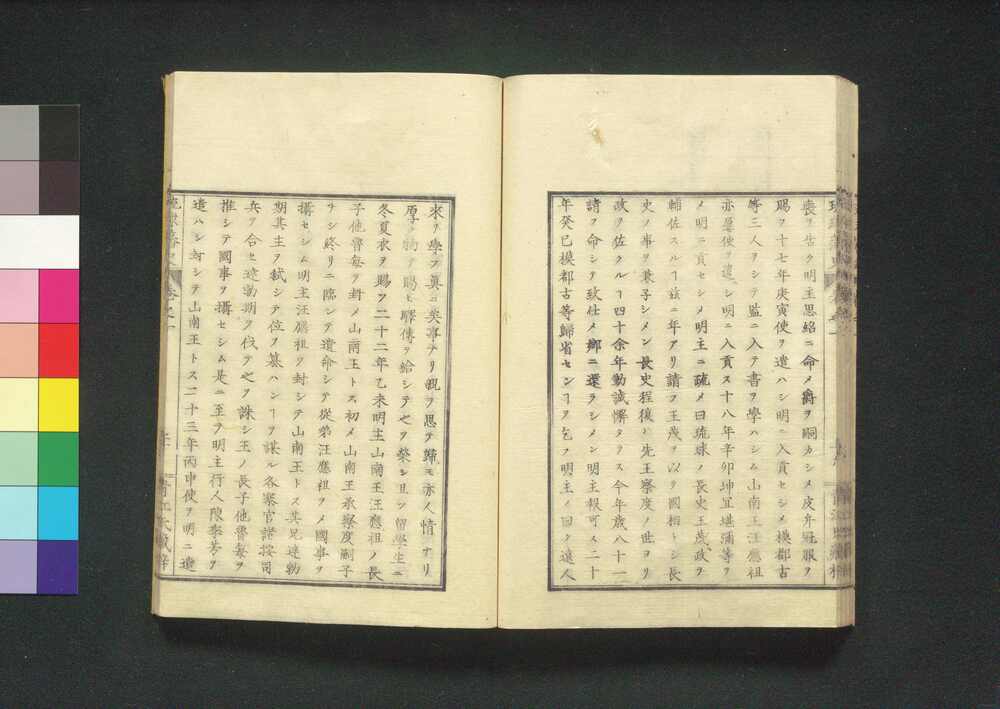 喪ヲ告ク明主思紹ニ命メ爵ヲ嗣カシメ皮弁冠服ヲ
賜フ十七年庚寅使ヲ遣ハシ明ニ入貢セシメ模都古
等三人ヲシテ監ニ入テ書ヲ學ハシム山南王汪應祖
亦屡使ヲ遣シ明ニ入貢ス十八年辛卯坤宜堪彌等ヲ
メ明ニ貢セシメ明主ニ疏メ曰琉球ノ長史王茂政ヲ
輔佐スルヿ茲ニ年アリ請フ王茂ヲ以テ國相トシ長
史ノ事ヲ兼子シメン長史程復ハ先王察度ノ世ヨリ
政ヲ佐クルヿ四十余年勤誠懈タラス今年歳八十一
請フ命シテ致仕メ鄉ニ還ラシメン明主報可ス二十
年癸巳模都古等歸省センヿヲ乞フ明主ノ曰ク遠人
來ヲ學フ眞ニ美事ナリ親ヲ思テ歸モ亦人情ナリ
厚ク物ヲ賜ヒ驛傳ヲ給シテ之ヲ榮シ且ツ留學生ニ
冬夏衣ヲ賜フ二十二年乙未明主山南王汪應祖ノ長
子他魯每ヲ封メ山南王トス初メ山南王承察度嗣子
ナシ終リニ臨シテ遺命シテ從弟汪應祖ヲメ國事ヲ
攝セシム明主汪應祖ヲ封シテ山南王トス其兄達勃
期其主ヲ弑シテ位ヲ簒ハンヿヲ謀ル各寨官諸按司
兵ヲ合セ達勃期ヲ伐テ之ヲ誅シ王ノ長子他魯每ヲ
推シテ國事ヲ攝セシム是ニ至テ明主行人陳季芳ヲ
遣ハシ封シテ山南王トス二十三年丙申使ヲ明ニ遣
琉球藩史 卷之一